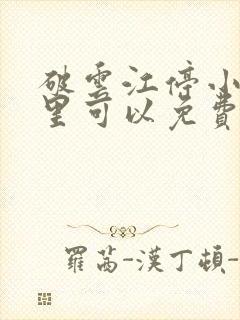 破雲江停小
里可以免費
羅茜-漢丁頓-